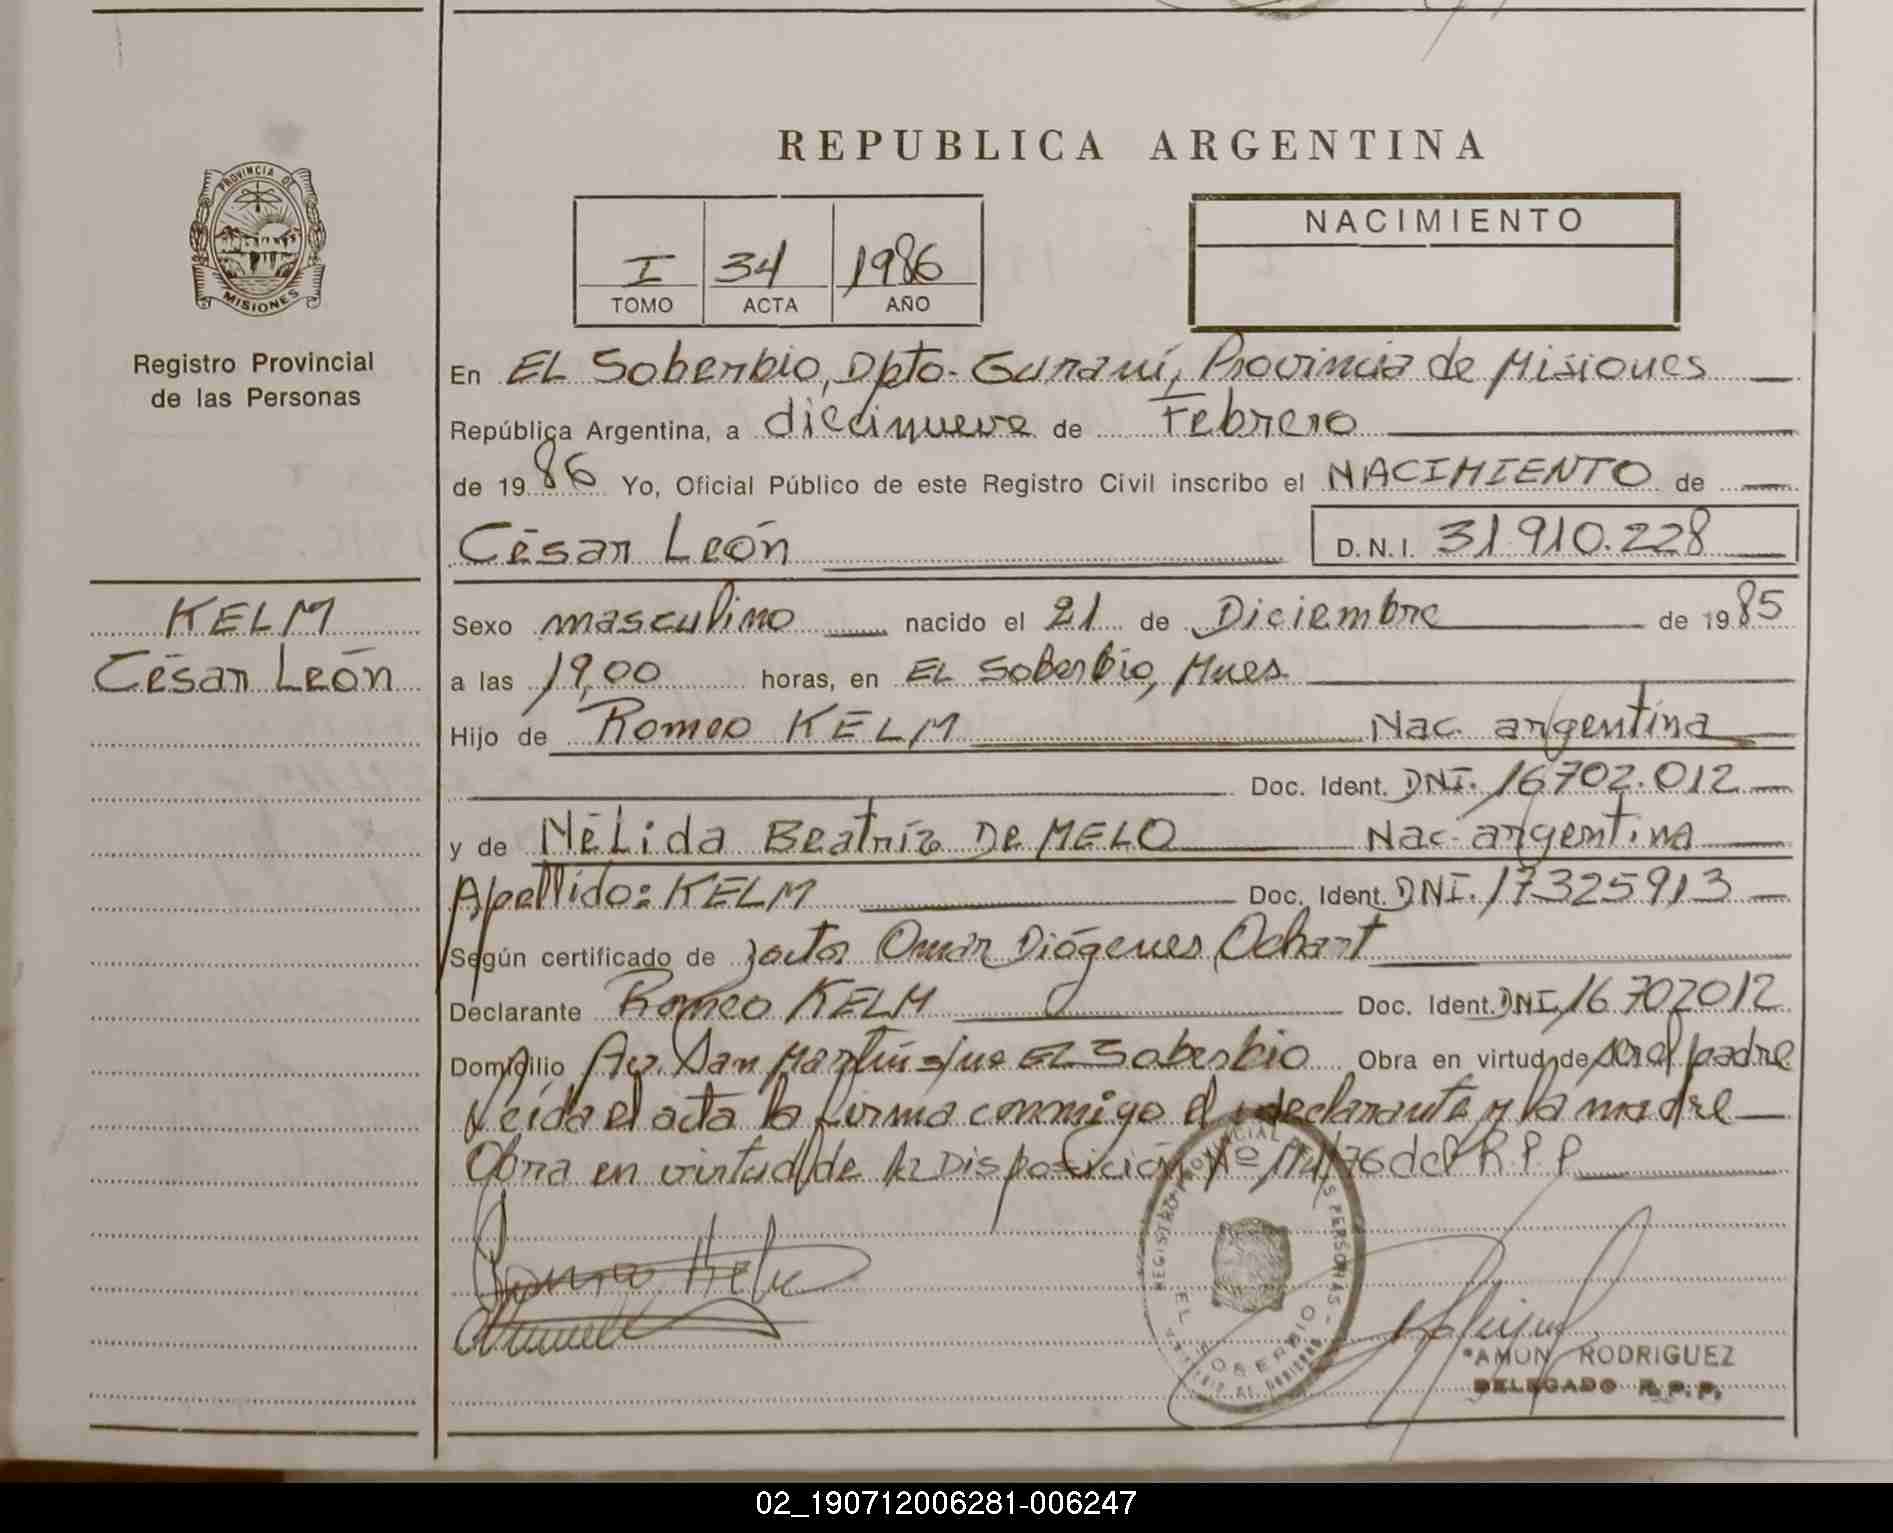 REPUBLICA ARGENTINA
PROVINCIA DE
MISIONES
Registro Provincial
de las Personas
I 34 1986
TOMO ACTA AÑO
NACIMIENTO
En EL Soberbio, Dpto. Guraní, Provincia de Misiones
República Argentina, a diecinueve de Febrero
de 1986 Yo, Oficial Público de este Registro Civil inscribo el NACIMIENTO de
César León D.N.I. 31.910.228
KELM
César León
Sexo masculino nacido el 21 de Diciembre de 1985
a las 19,00 horas, en EL Soberbio, Mnes
Hijo de Romeo KELM Nac. argentina
Doc. Ident. DNI. 16702.012
y de NéLida Beatríz De MELO Nac. argentina
Apellido: KELM Doc. Ident. DNI. 17325913
Según certificado de Omar Diógenes Ochart
Declarante Romeo KELM Doc. Ident. DNI 16702012
Domicilio Av. San Martín s/nº EL Soberbio Obra en virtud de ser el padre
Leída el acta la firma conmigo el declarante y la madre
Obra en virtud de la Disposición Nº /76 del R.P.P
REGISTRO PROVINCIAL DE LAS PERSONAS
EL SOBERBIO
AMON RODRIGUEZ
DELEGADO R.P.P.
02_190712006281-006247